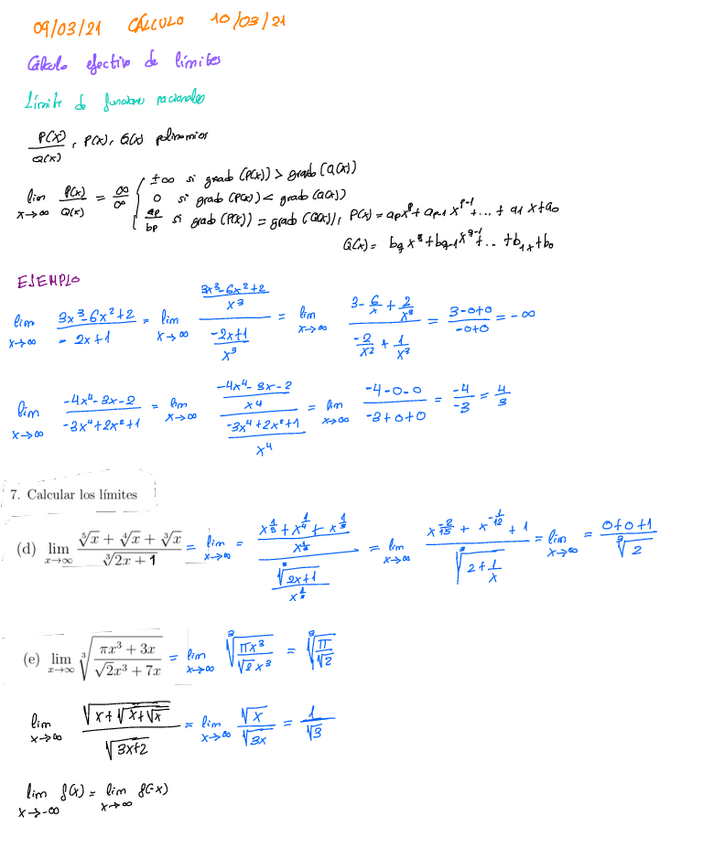 09/03/21 CÁLCULO 10/03/21
Cálculo efectivo de límites
Límite de funciones racionales
P(x)/Q(x), P(x), Q(x) polinomios
lim x→∞ P(x)/Q(x) = ∞/∞ { ±∞ si grado (P(x)) > grado (Q(x))
0 si grado (P(x)) < grado (Q(x))
ap/bp si grado (P(x)) = grado (Q(x)), P(x) = apx^p + ap-1 x^p-1 + ... + a1 x + a0
Q(x) = bq x^q + bq-1 x^q-1 + .. + b1x + b0
EJEMPLO
lim x→∞ (3x³-6x²+2)/(-2x+1) = lim x→∞ ((3x³-6x²+2)/x³)/((-2x+1)/x³) = lim x→∞ (3 - 6/x + 2/x³)/(-2/x² + 1/x³) = (3-0+0)/(-0+0) = -∞
lim x→∞ (-4x⁴-3x-2)/(-3x⁴+2x²+1) = lim x→∞ ((-4x⁴-3x-2)/x⁴)/((-3x⁴+2x²+1)/x⁴) = lim x→∞ (-4-0-0)/(-3+0+0) = -4/-3 = 4/3
7. Calcular los límites
(d) lim x→∞ (⁵√x + ⁴√x + ³√x)/(³√2x + 1) = lim x→∞ = ((x^1/5 + x^1/4 + x^1/3)/x^1/3)/(³√(2x+1)/x^1/3) = lim x→∞ (x^-2/15 + x^-1/12 + 1)/³√(2+1/x) = lim x→∞ = (0+0+1)/³√2
(e) lim x→∞ ³√((πx³ + 3x)/(√2x³ + 7x)) = lim x→∞ ³√(πx³/√2x³) = ³√(π/√2)
lim x→∞ √(x+√(x+√x))/√(3x+2) = lim x→∞ √x/√3x = 1/√3
lim x→-∞ f(x) = lim x→∞ f(-x)